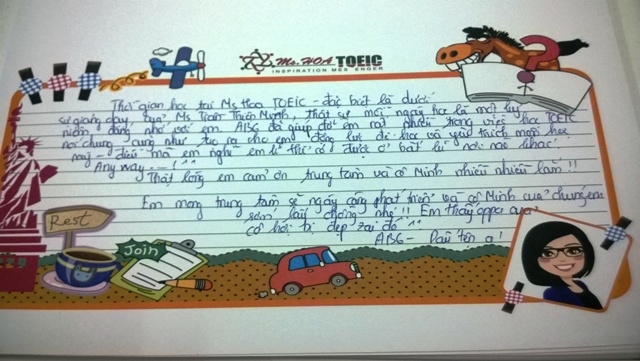 Ms.HOA TOEIC
INSPIRATION MESSENGER
Thời gian học tại Ms Hoa TOEIC - đặc biệt là dưới
sự giảng dạy của Ms Trần Minh, thật sự mỗi ngày học là một kỷ
niệm đáng nhớ với em. A86 đã giúp đỡ em rất nhiều trong việc học TOEIC
nói chung cũng như tạo ra cho em động lực đi học và yêu thích môn học
này - điều mà em nghĩ em ko thể có được ở bất kì nơi nào khác
Any way
Thật lòng em cảm ơn trung tâm và cô Minh nhiều nhiều lắm !!
Em mong trung tâm sẽ ngày càng phát triển và cô Minh của chúng em
sớm lấy chồng nhé !! Em thấy oppa
cơ hội bị đẹp zai đó ^^
A86 - kí tên ạ!
Rest
Join